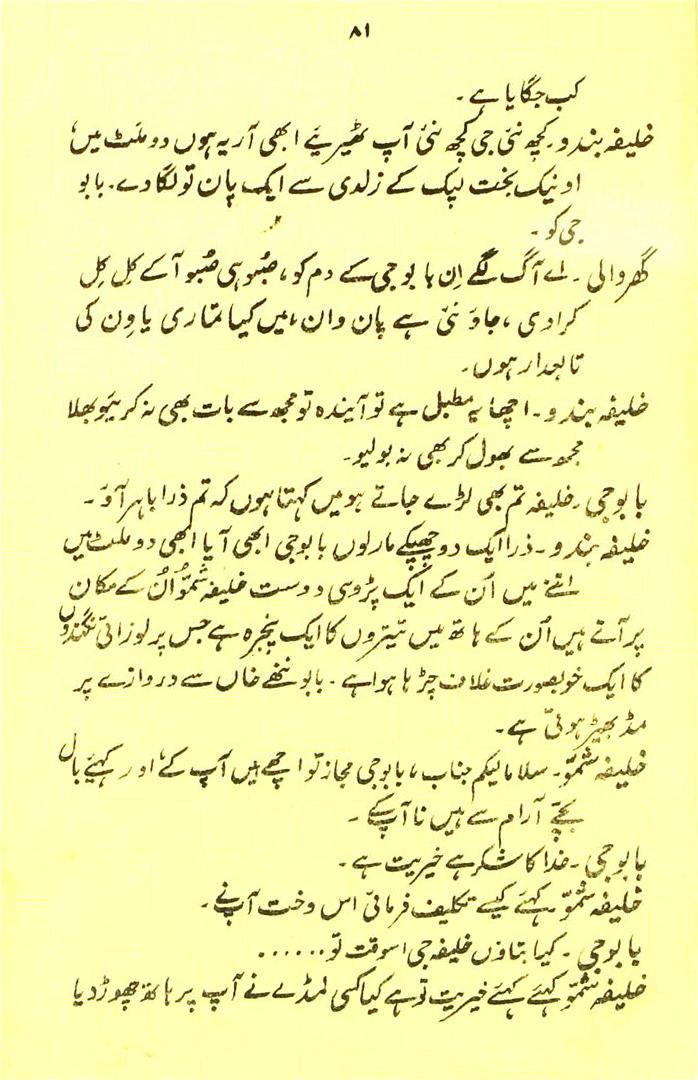 ۸۱
کب جگایا ہے۔
خلیفہ بندو۔ کچھ نئی جی کچھ نئی آپ ٹھیریئے ابھی آریہ ہوں دو ملٹ میں،
او نیک بخت لپک کے زلدی سے ایک پان تو لگا دے۔ بابو
جی کو۔
گھر والی۔ اے آگ لگے اِن بابو جی کے دم کو، صُبو ہی صُبو آ کے کِل کِل
کرا دی، جاؤ نئی ہے پان وان، میں کیا تماری یا وِن کی
تابعدار ہوں۔
خلیفہ بندو۔ اچھا یہ مطبل ہے تو آیندہ تو مجھ سے بات بھی نہ کریئو بھلا
مجھ سے بھول کر بھی نہ بولیو۔
بابو جی۔ خلیفہ تم بھی لڑے جاتے ہو میں کہتا ہوں کہ تم ذرا باہر آؤ۔
خلیفہ بندو۔ ذرا ایک دو چھپکے مار لوں بابو جی ابھی آیا ابھی دو ملٹ میں
اتنے میں اُن کے ایک پڑوسی دوست خلیفہ شمّو اُن کے مکان
پر آتے ہیں اُن کے ہاتھ میں تیتروں کا ایک پنجرہ ہے جس پر لوزاتی نگندوں
کا ایک خوبصورت غلاف چڑہا ہوا ہے۔ بابو ننھے خاں سے دروازے پر
مڈ بھیڑ ہوئی ہے۔
خلیفہ شمّو۔ سلامالیکم جناب، بابو جی مجاز تو اچھے ہیں آپ کے، اور کہئے بال
بچّے آرام سے ہیں نا آپ کے۔
بابو جی۔ خدا کا شکر ہے خیریت ہے۔
خلیفہ شمّو۔ کہئے کیسے تکلیف فرمائی اس وخت آپ نے۔
بابو جی۔ کیا بتاؤں خلیفہ جی اسوقت تو......
خلیفہ شمّو کہئے کہئے خیریت تو ہے کیا کسی لمڈے نے آپ پر ہاتھ چھوڑ دیا